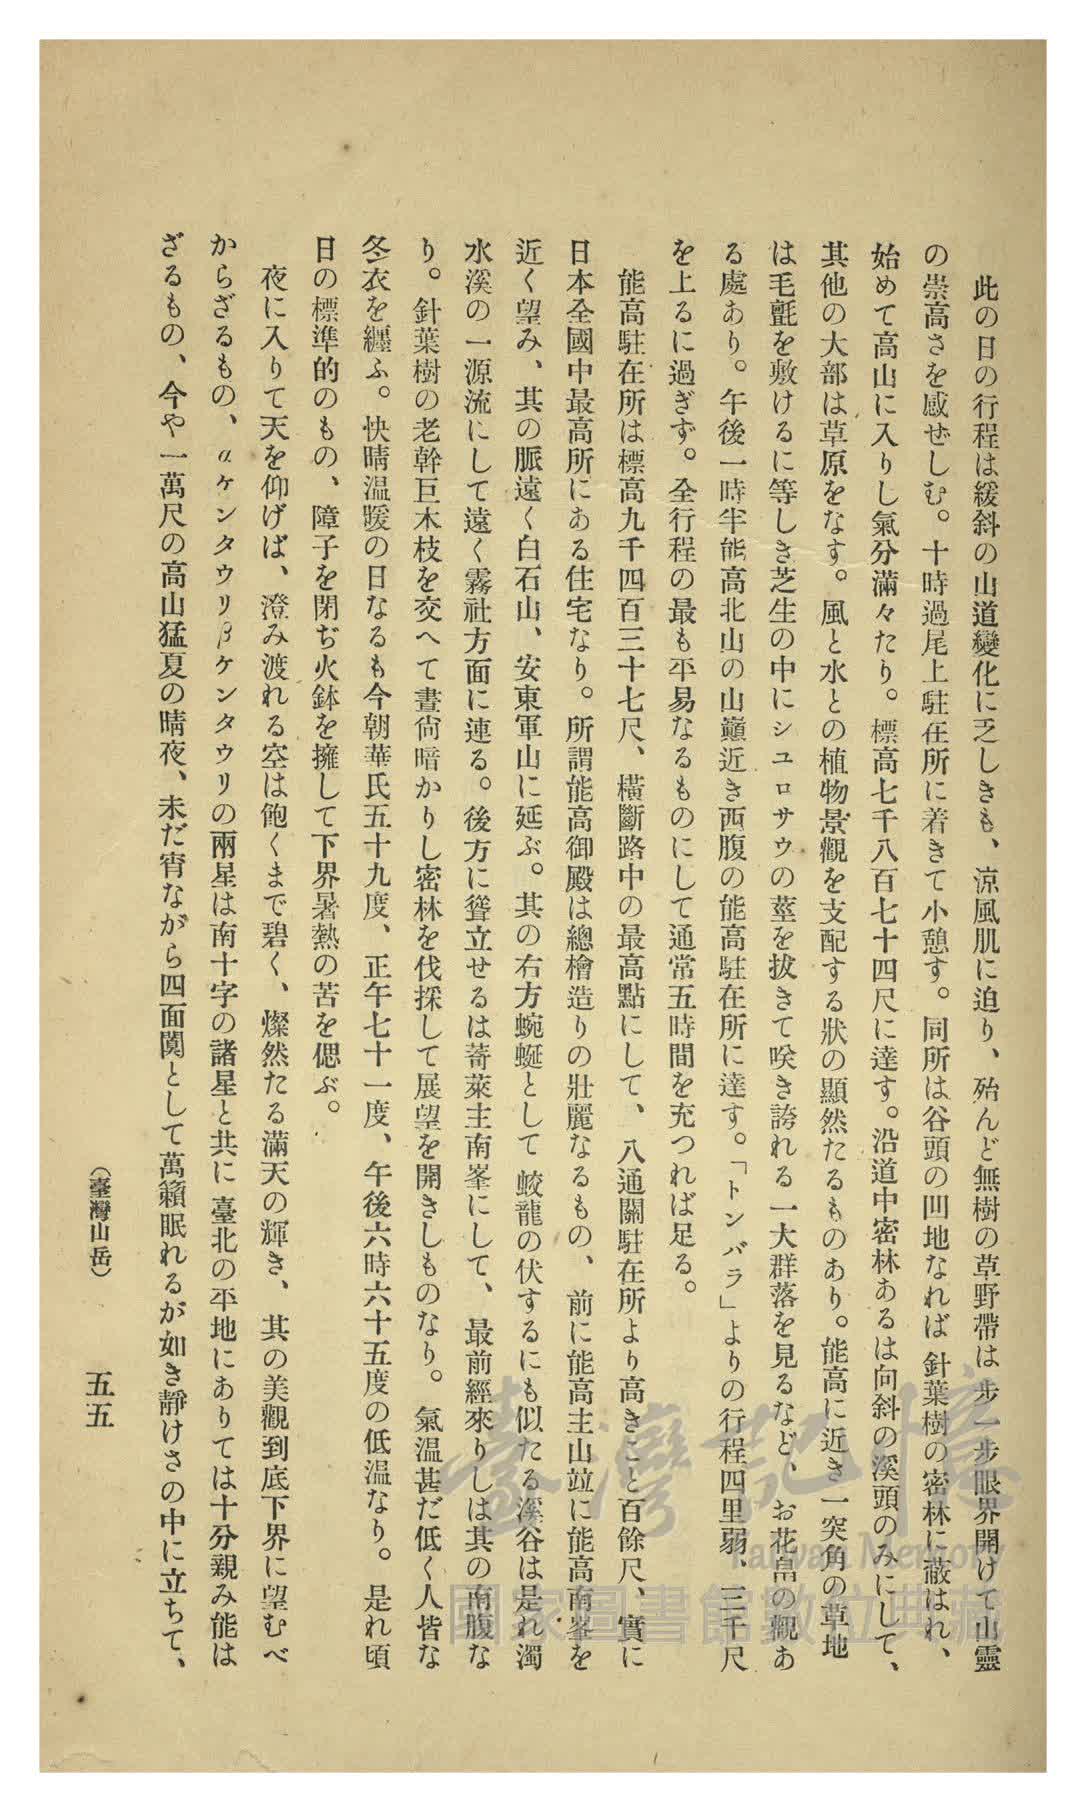 此の日の行程は緩斜の山道變化に乏しきも、涼風肌に迫り、殆んど無樹の草野帶は步一步眼界開けて山靈
の崇高さを感ぜしむ。十時過尾上駐在所に着きて小憩す。同所は谷頭の凹地なれば針葉樹の密林に蔽はれ、
始めて高山に入りし氣分滿々たり。標高七千八百七十四尺に達す。沿道中密林あるは向斜の溪頭のみにして、
其他の大部は草原をなす。風と水との植物景觀を支配する狀の顯然たるものあり。能高に近き一突角の草地
は毛氈を敷けるに等しき芝生の中にシユロサウの莖を拔きて咲き誇れる一大群落を見るなど、お花畠の觀あ
る處あり。午後一時半能高北山の山巓近き西腹の能高駐在所に達す。「トンバラ」よりの行程四里弱、三千尺
を上るに過ぎず。全行程の最も平易なるものにして通常五時間を充つれば足る。
能高駐在所は標高九千四百三十七尺、橫斷路中の最高點にして、八通關駐在所より高きこと百餘尺、實に
日本全國中最高所にある住宅なり。所謂能高御殿は總檜造りの壯麗なるもの、前に能高主山竝に能高南峯を
近く望み、其の脈遠く白石山、安東軍山に延ぶ。其の右方蜿蜒として蛟龍の伏するにも似たる溪谷は是れ濁
水溪の一源流にして遠く霧社方面に連る。後方に聳立せるは菁萊主南峯にして、最前經來りしは其の南腹な
り。針葉樹の老幹巨木枝を交へて晝尙暗かりし密林を伐採して展望を開きしものなり。氣溫甚だ低く人皆な
冬衣を纏ふ。快晴溫暖の日なるも今朝華氏五十九度、正午七十一度、午後六時六十五度の低溫なり。是れ頃
日の標準的のもの、障子を閉ぢ火鉢を擁して下界暑熱の苦を偲ぶ。
夜に入りて天を仰げば、澄み渡れる空は飽くまで碧く、燦然たる滿天の輝き、其の美觀到底下界に望むべ
からざるもの、αケンタウリβケンタウリの兩星は南十字の諸星と共に臺北の平地にありては十分親み能は
ざるもの、今や一萬尺の高山猛夏の晴夜、未だ宵ながら四面闃として萬籟眠れるが如き靜けさの中に立ちて、
(臺灣山岳)
五五
臺灣記憶
Taiwan Memory
國家圖書館數位典藏